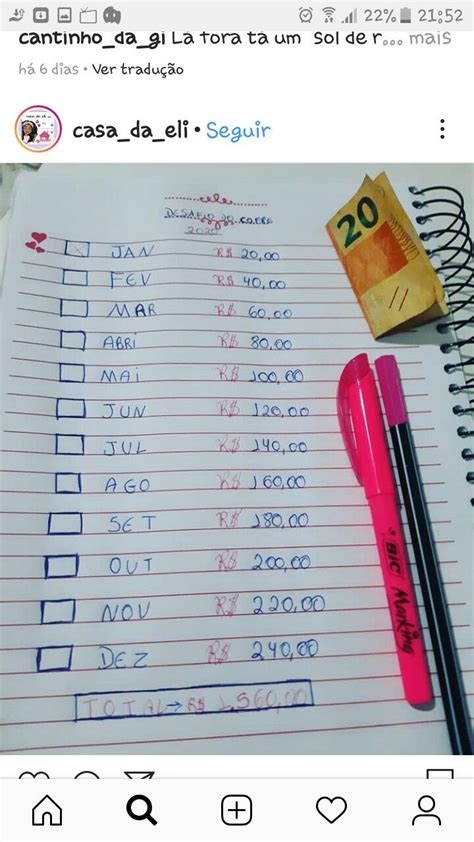 22% 21:52
cantinho_da_gi Lá fora tá um sol de r... mais
há 6 dias • Ver tradução
casa_da_eli • Seguir
DESAFIO DO COFRE
2020
JAN R$ 20,00
FEV R$ 40,00
MAR R$ 60,00
ABRI R$ 80,00
MAI R$ 100,00
JUN R$ 120,00
JUL R$ 140,00
AGO R$ 160,00
SET R$ 180,00
OUT R$ 200,00
NOV R$ 220,00
DEZ R$ 240,00
TOTAL → R$ 1.560,00
20
BIC Marking